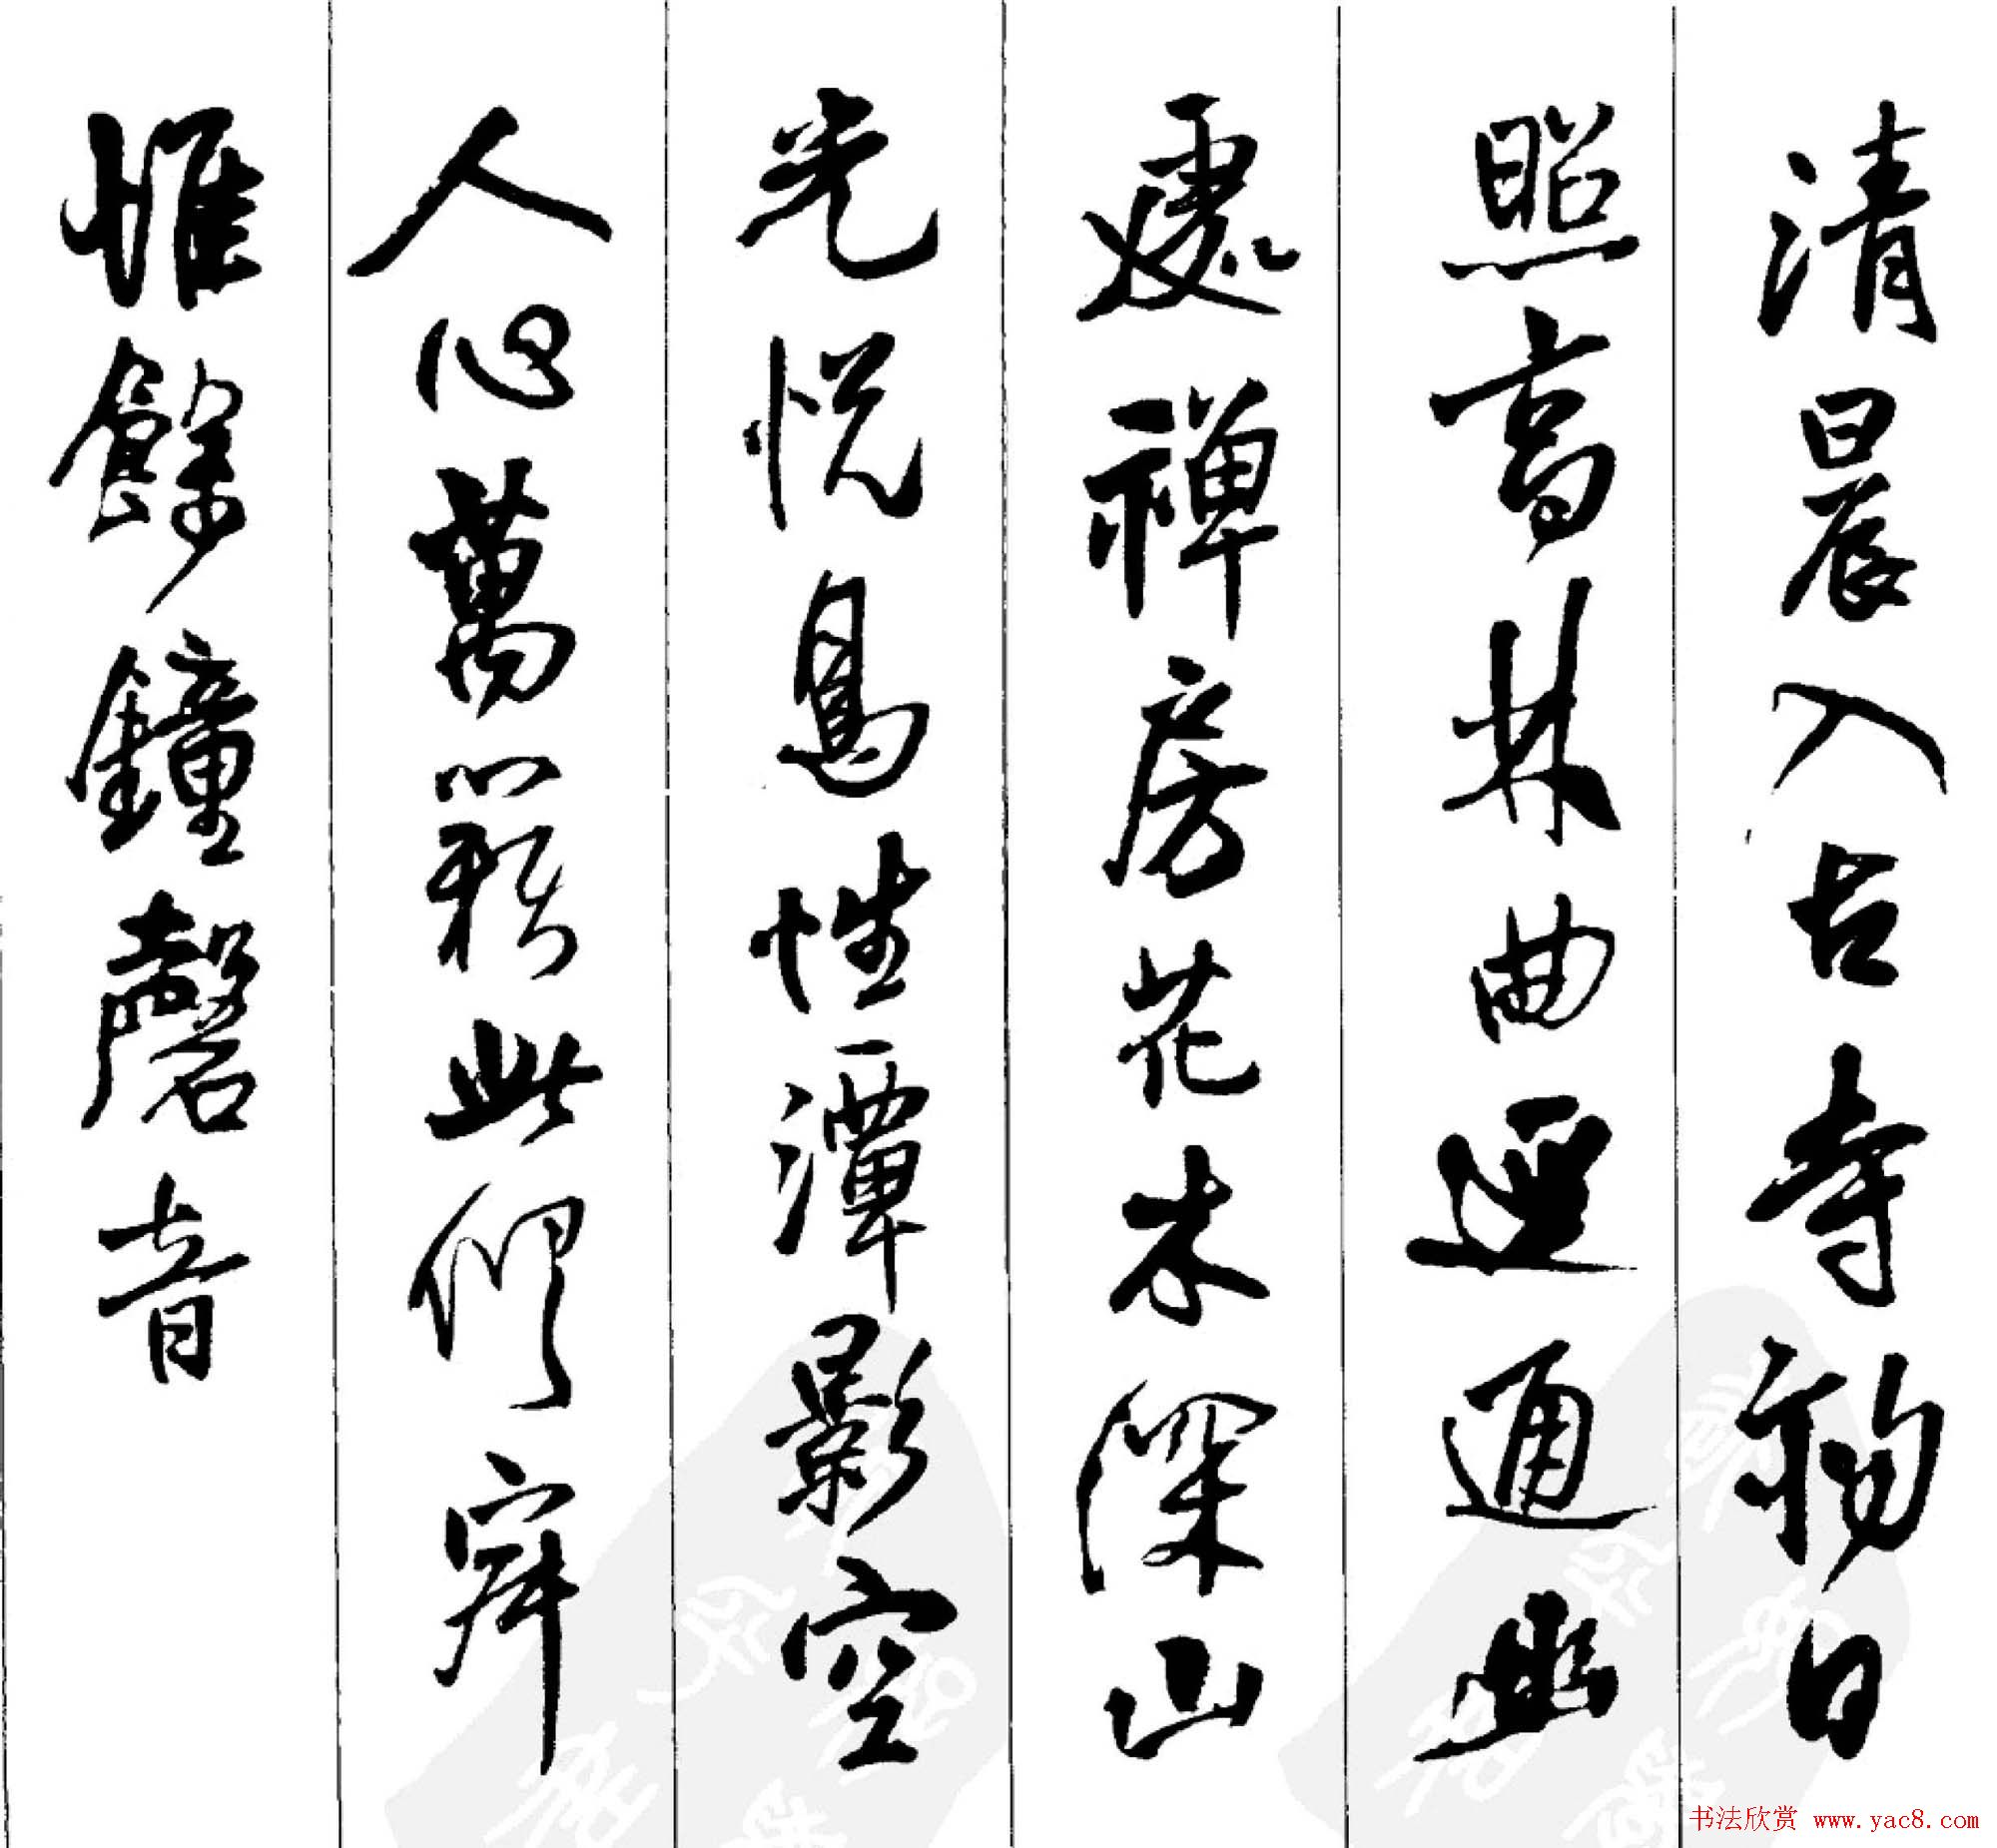 清晨入古寺初日
照高林曲逕通幽
處禪房花木深山
光悦鳥性潭影空
人心萬籟此俱寂
惟餘鐘磬音
书法欣赏 www.yac8.com